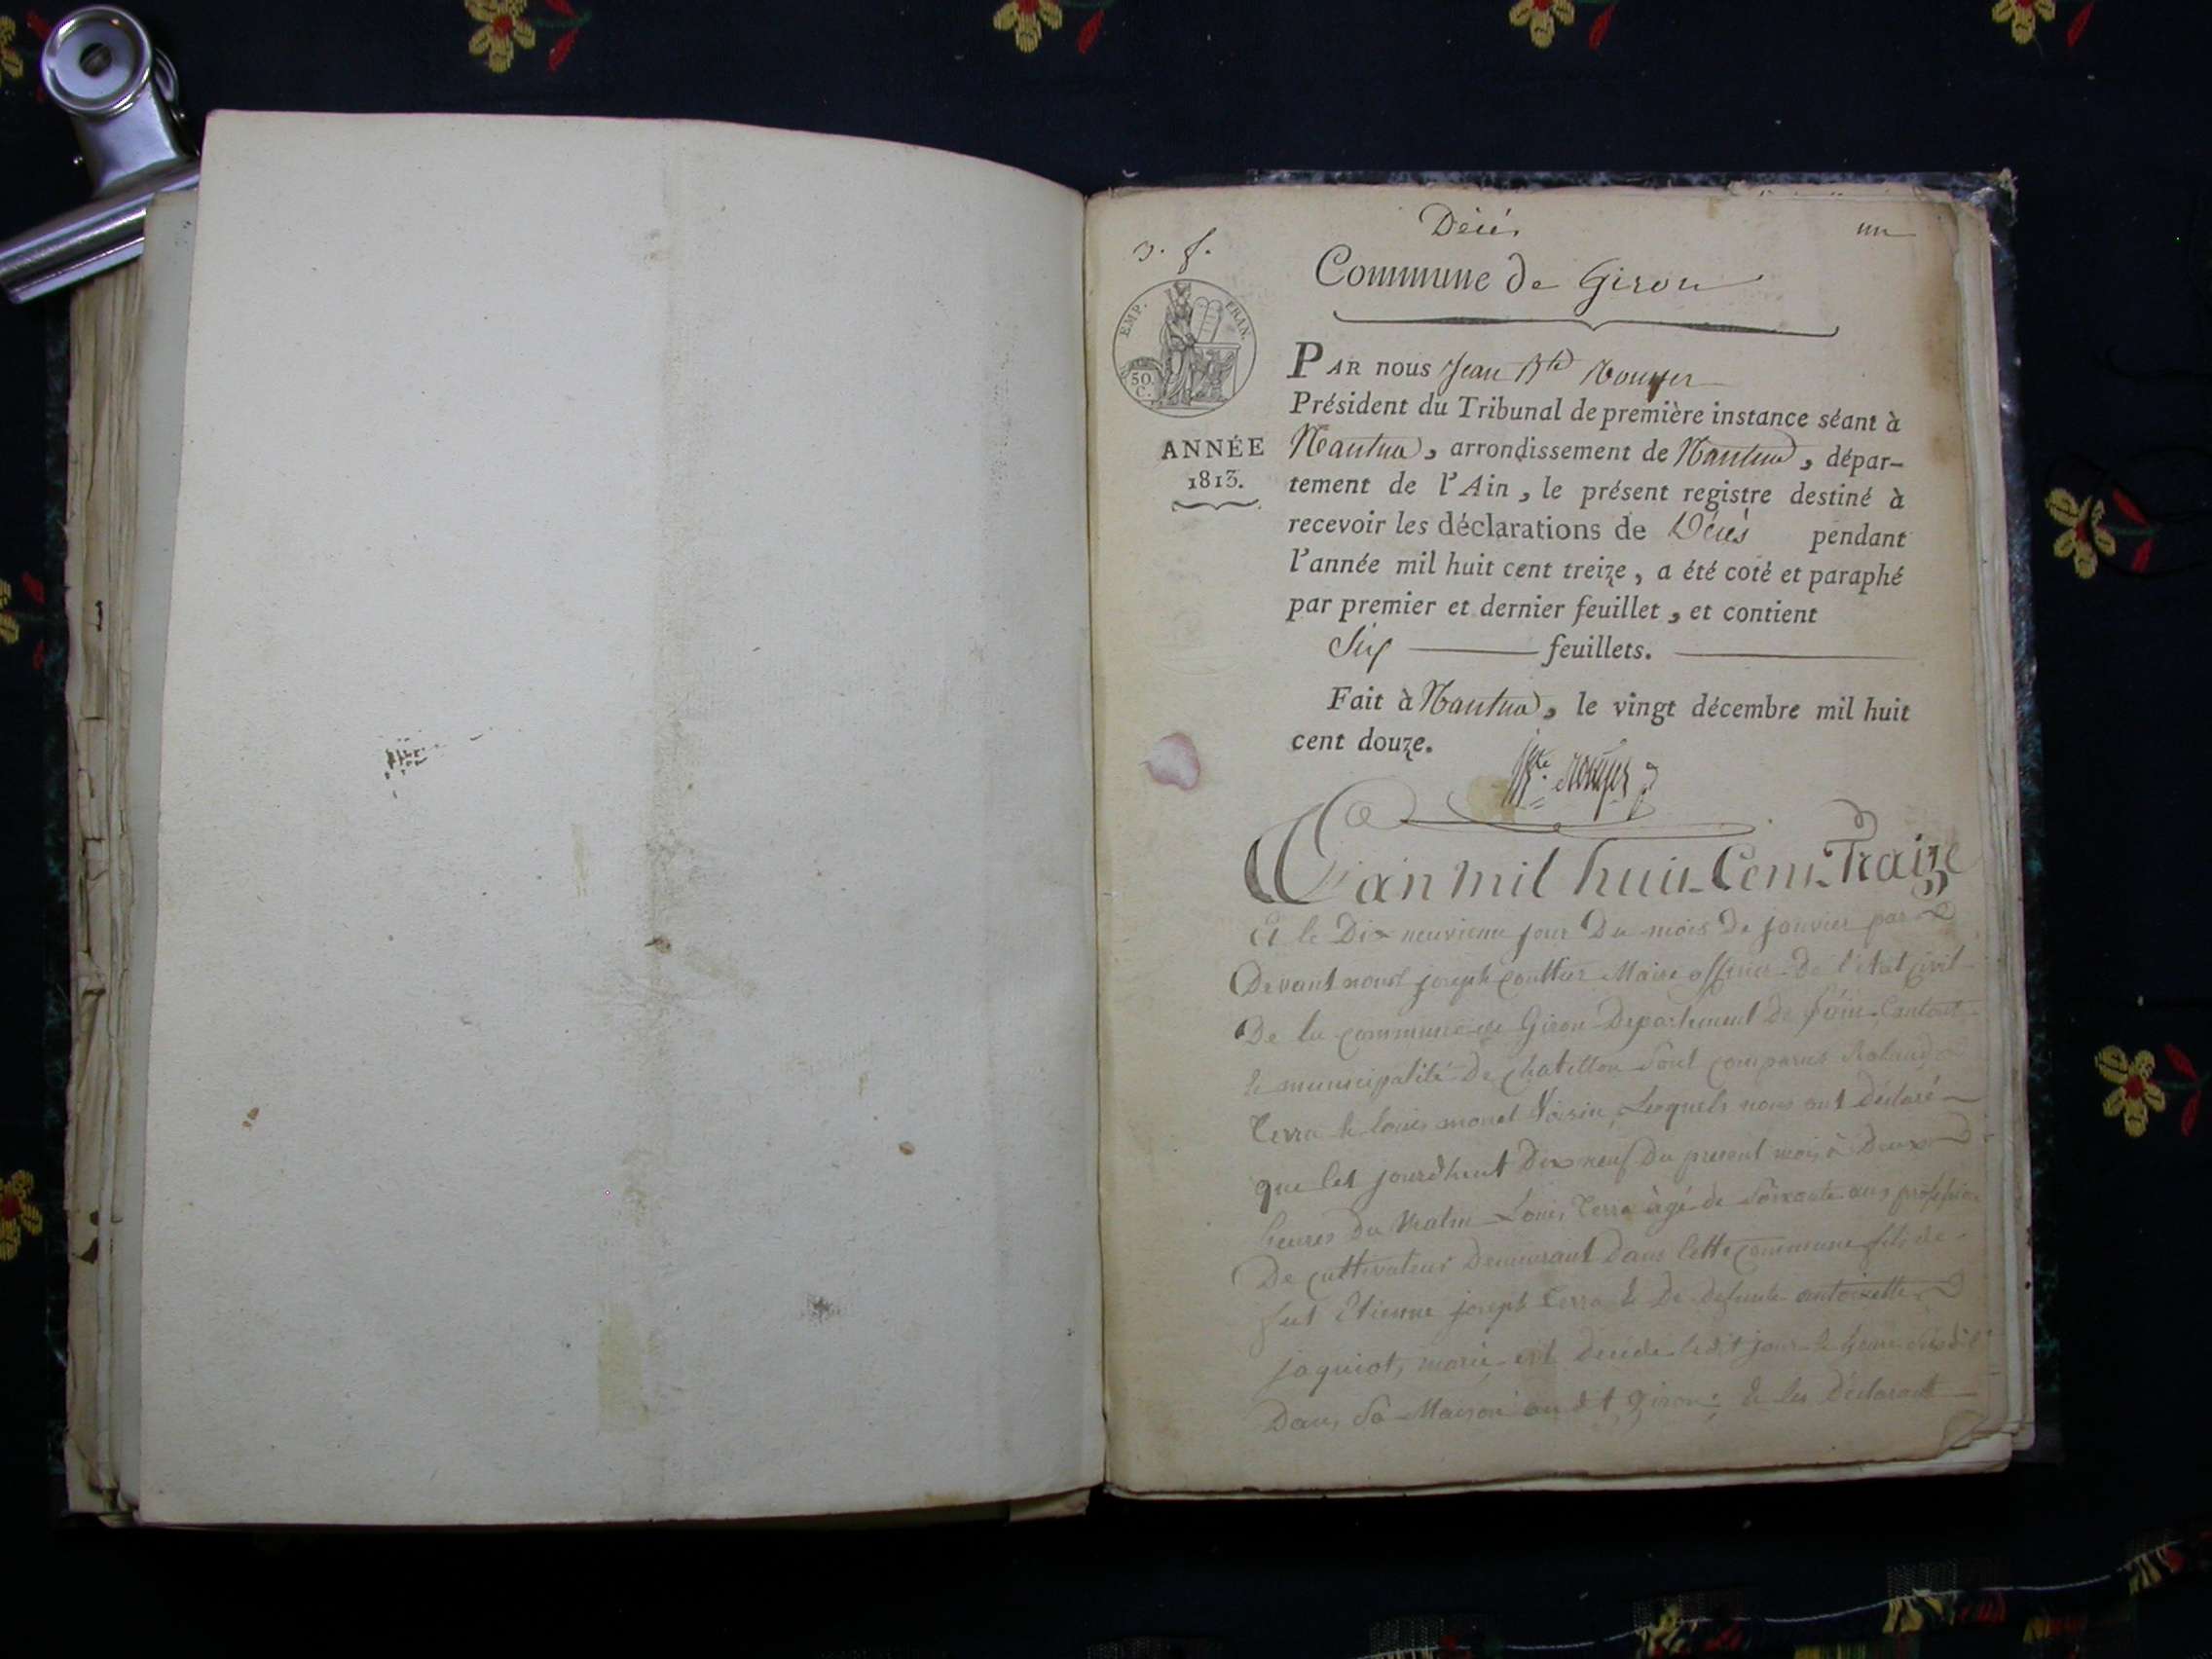 Décés
un
3. f.
Commune de Giron
EMP. FRAN.
50.
C.
ANNÉE
1813.
PAR nous Jean Bte Rouyer
Président du Tribunal de première instance séant à
Nantua, arrondissement de Nantua, dépar-
tement de l'Ain, le présent registre destiné à
recevoir les déclarations de Décés pendant
l'année mil huit cent treize, a été coté et paraphé
par premier et dernier feuillet, et contient
Six feuillets.
Fait à Nantua, le vingt décembre mil huit
cent douze.
Bte. Rouyer
L'an mil huit Cent Traize
Et le Dix neuvieme jour Du mois De janvier par
Devant nous joseph Maire officier De l'état civil
De la commune de Giron Departement De Canton
municipalité De Chatillon Sont comparus Roland
Terra & louis monet Voisin, Lesquels nous ont Déclaré
que cet jourdhuit Dix neuf Du present mois à Deux
heures Du Matin Louis Terra âgé de Soixante ans profession
De cultivateur Demeurant Dans Cette commune fils de
fut Etienne joseph Terra & De Defunte antoinette
jaquiot, marié est Decedé ledit jour & heure
Dans Sa Maison au dt Giron; & les Déclarant